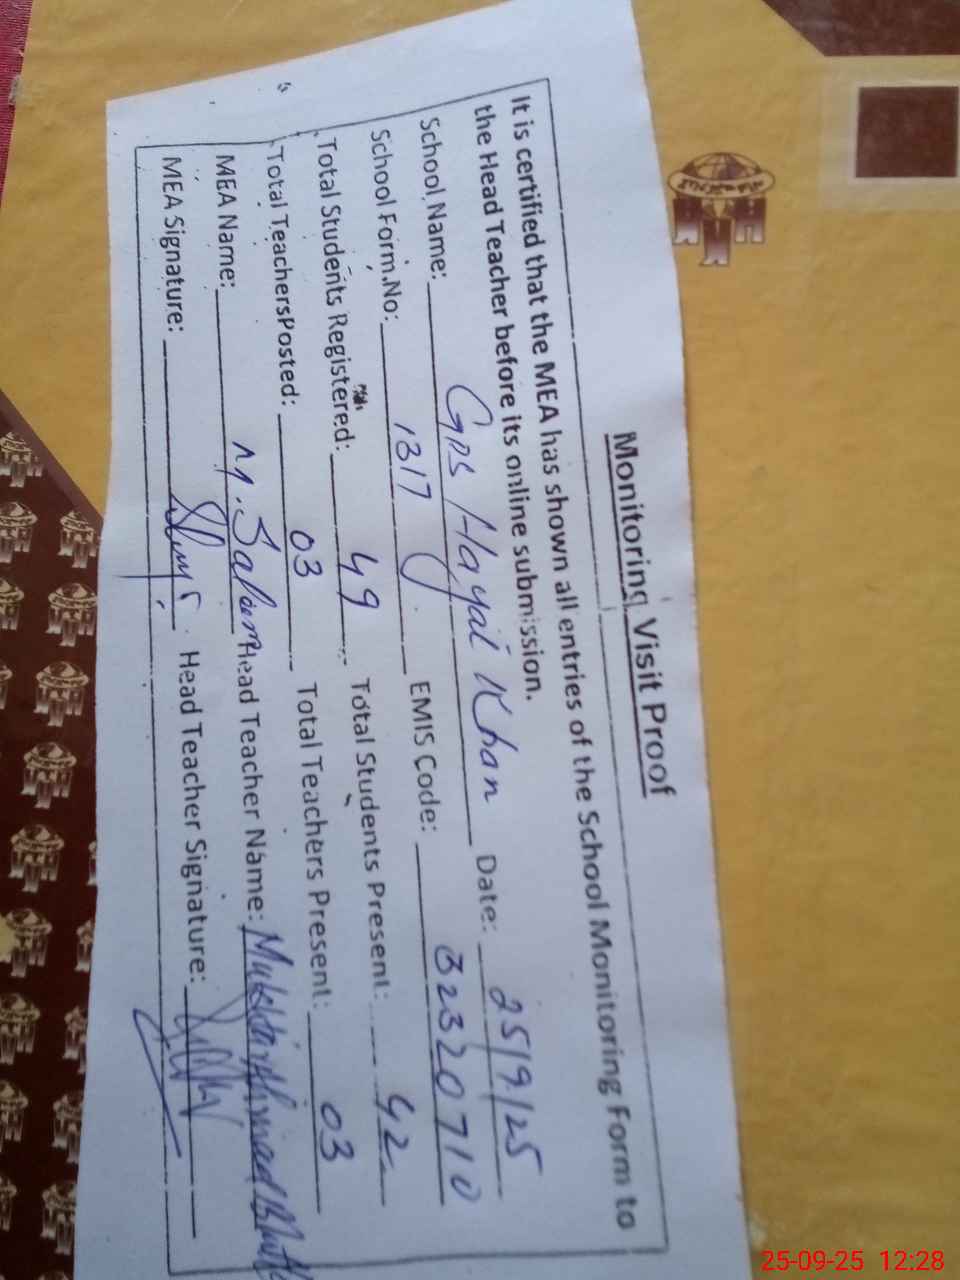 Monitoring Visit Proof
It is certified that the MEA has shown all entries of the School Monitoring Form to
the Head Teacher before its online submission.
School Name: GPS Hayat Khan Date: 25/9/25
School Form.No: 1317 EMIS Code: 32320710
Total Students Registered: 49 Total Students Present: 42
Total TeachersPosted: 03 Total Teachers Present: 03
MEA Name: M. Saleem Head Teacher Name: Mukhtar Ahmad Bhatti
MEA Signature: Head Teacher Signature:
25-09-25 12:28